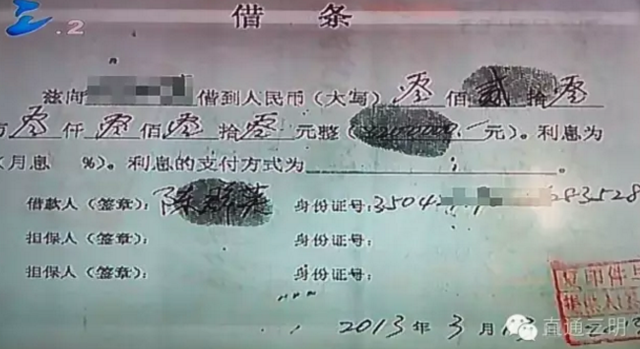 .2
借 条
兹向 借到人民币（大写）零佰贰拾零
万零仟零佰零拾零元整（ 元）。利息为
（月息 %）。利息的支付方式为 ；
借款人（签章）：陈 身份证号：3504 283528
担保人（签章）： 身份证号：
担保人（签章）： 身份证号：
复印件
2013年3月13
直通三明